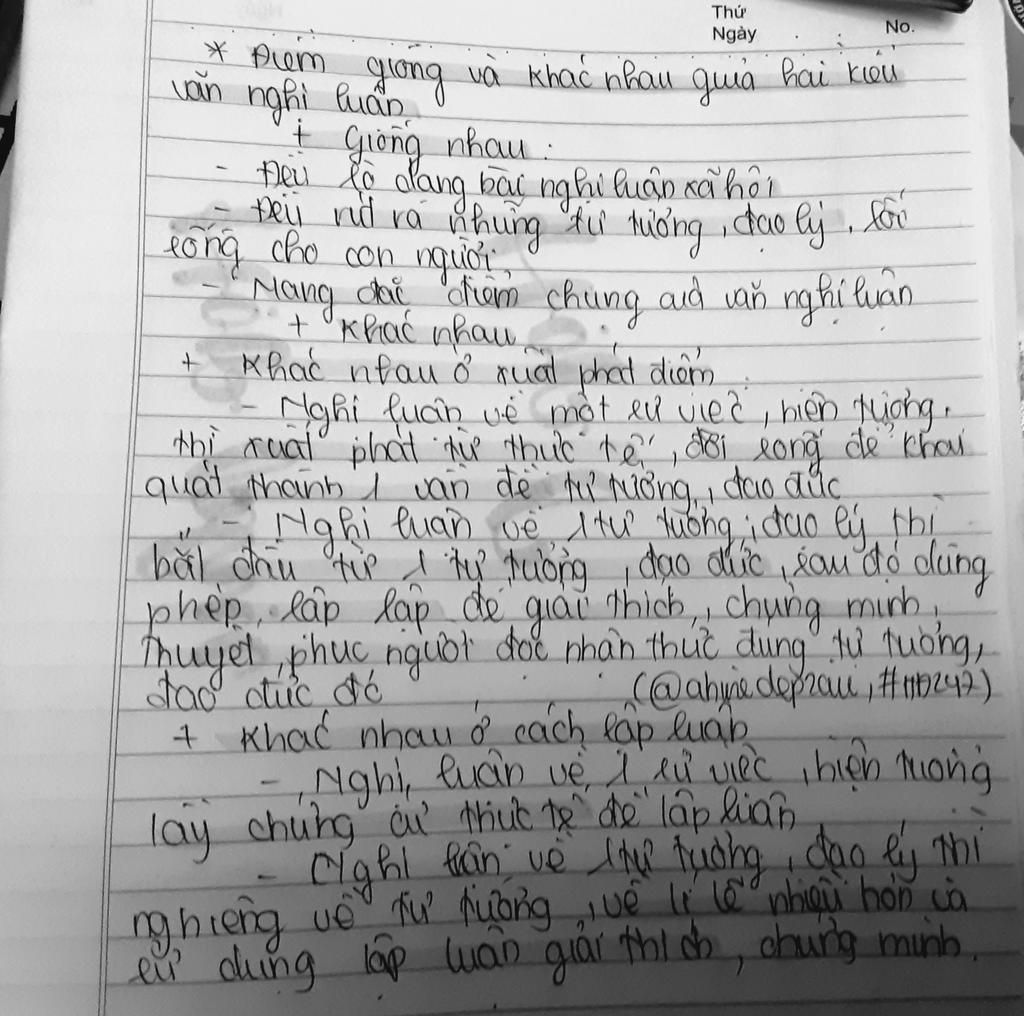 Thứ
Ngày . : No.
* Điểm giống và khác nhau giữa hai kiểu
văn nghị luận
+ Giống nhau :
- Đều là dạng bài nghị luận xã hội
- Đều rút ra những tư tưởng, đạo lý, lối
sống cho con người
- Mang đặc điểm chung của văn nghị luận
+ Khác nhau
+ Khác nhau ở xuất phát điểm
- Nghị luận về một sự việc, hiện tượng,
thì xuất phát từ thực tế, đời sống để khái
quát thành 1 vấn đề tư tưởng, đạo đức
- Nghị luận về 1 tư tưởng, đạo lý thì
bắt đầu từ 1 tư tưởng, đạo đức, sau đó dùng
phép lập lập để giải thích, chứng minh,
thuyết phục người đọc nhận thức đúng tư tưởng,
đạo đức đó
+ Khác nhau ở cách lập luận
- Nghị luận về 1 sự việc, hiện tượng
lấy chứng cứ thực tế để lập luận
- Nghị luận về 1 tư tưởng, đạo lý thì
nghiêng về tư tưởng, về lí lẽ nhiều hơn và
sử dụng lập luận giải thích, chứng minh.